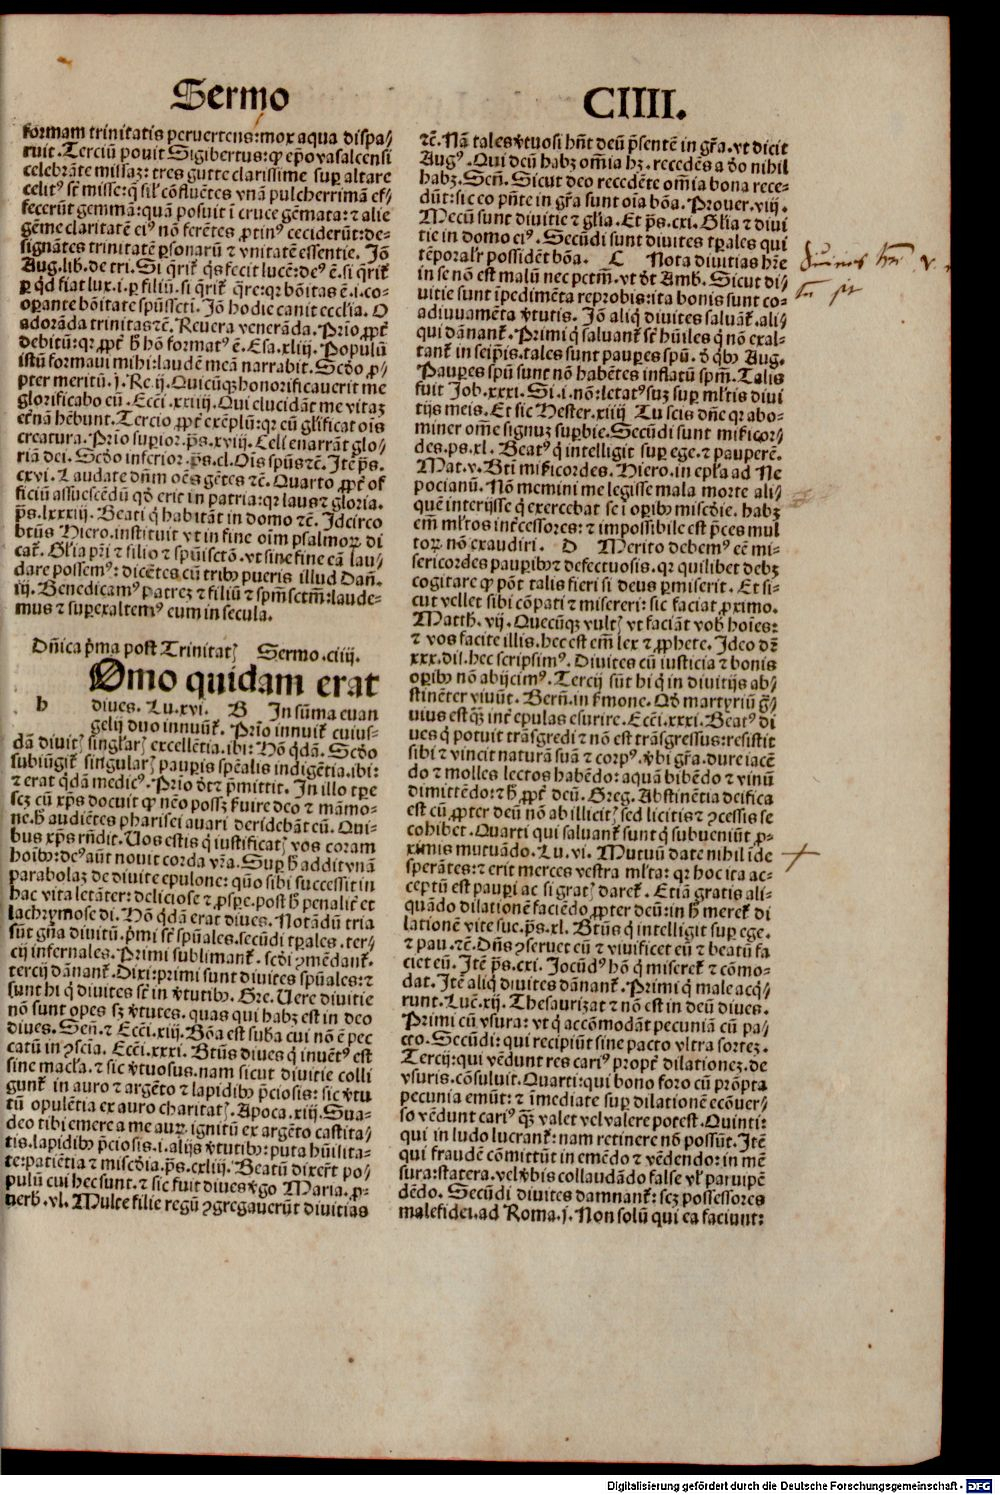 Sermo CIIII.
formam trinitatis peruertens: mox aqua dispa/
ruit. Terciū ponit Sigibertus: ꝙ epō vasalcensi
celebrāte missaz: tres gutte clarissime suꝑ altare
celitꝰ st̄ misse: q̄ sił cōfluētes vnā pulcherrimā ef/
fecerūt gemmā: quā posuit ī cruce gēmata: ⁊ alie
gēme claritatē eiꝰ nō ferētes ꝓtinꝰ ceciderūt: de-
signātes trinitatē ꝑsonarū ⁊ vnitatē essentie. Jō
Aug. lib. de tri. Si q̄riť qs fecit lucē: deꝰ ē. si q̄riť
ꝑ qd fiat lux. i. ꝑ filiū. si q̄riť q̄re: qr bōitas ē. i. co-
oꝑante bōitate spūssctī. Jō hodie canit ecclīa. O
adorāda trinitas ⁊c̄. Reuera venerāda. Prīo ꝓpť
debitū: qr ꝓpť ħ hō formatꝰ ē. Esa. xliij. Populū
istū formaui mihi: laudē meā narrabit. Scd̄o ꝓ/
pter meritū. j. Re. ij. Quicūqꝫ honorificauerit me
glorificabo eū. Ecc̄i. xxiiij. Qui elucidāt me vitaz
et̄nā hēbunt. Tercio ꝓpť exēplū: qr eū gl̄ificat oīs
creatura. Prīo suꝑior. p̄s. xviij. Celi enarrāt glo/
riā dei. Scd̄o inferior. p̄s. cl. Oīs spūs ⁊c̄. Jtē p̄s.
cxvi. Laudate dn̄m oēs gētes ⁊c̄. Quarto ꝓpť of
ficiū assuescēdū qd̄ erit in patria: qr laus ⁊ gloria.
p̄s. lxxxiij. Beati q̄ habitāt in domo ⁊c̄. Jdcirco
btūs Hiero. instituit vt in fine oīm psalmoꝝ di
cať. Gl̄ia pr̄i ⁊ filio ⁊ spūisctō. vt sine fine eā lau/
dare possemꝰ: dicētes cū tribꝰ pueris illud Dan̄.
iij. Benedicamꝰ patrez ⁊ filiū ⁊ spm̄ sctm̄: laude-
mus ⁊ suꝑexaltemꝰ eum in secula.
Dn̄ica p̄ma post Trinitatꝭ Sermo. ciiij.
Omo quidam erat
h diues. Lu. xvi. B Jn sūma euan
gelij duo innuūť. Prīo innuiť cuius-
dā diuitꝭ singl̄arꝭ excellētia. ibi: Hō qdā. Scd̄o
subiūgiť singularꝭ pauꝑis spēalis indigētia. ibi:
⁊ erat qdā medicꝰ. Prīo d̄r ⁊ p̄mittit. Jn illo tꝑe
scꝫ cū xp̄s docuit ꝙ nēo possꝫ f̄uire deo ⁊ māmo-
ne. ħ audiētes pharisei auari deridebāt eū. Qui-
bus xp̄s rn̄dit. Uos estis q̄ iustificatꝭ vos coram
hoībꝰ: deꝰ aūt nouit corda vr̄a. Suꝑ ħ addit vnā
parabolaz de diuite epulone: quō sibi successit in
hac vita letāter: deliciose ⁊ ꝓspe. post ħ penaliť et
lachrymose di. Hō qdā erat diues. Notādū tria
sūt gn̄a diuitū. p̄mi st̄ spūales. secūdi tꝑales. ter/
cij infernales. Primi sublimanť. scd̄i ꝯmēdanť.
tercij dānanť. Dixi: primi sunt diuites spūales: ⁊
sunt hi q̄ diuites st̄ in v̄tutibꝰ. Gre. Uere diuitie
nō sunt opes sꝫ v̄tutes. quas qui habꝫ est in deo
diues. Sen̄. ⁊ Ecc̄i. xiij. Bōa est suba cui nō ē pec
catū in ꝯscīa. Ecc̄i. xxxi. Btūs diues q̄ inuētꝰ est
sine macl̄a. ⁊ sic v̄tuosus. nam sicut diuitie colli
gunť in auro ⁊ argēto ⁊ lapidibꝰ p̄ciosis: sic v̄tu
tū opulētia ex auro charitatꝭ. Apoca. xiij. Sua-
deo tibi emere a me auꝝ ignitū ex argēto castita/
tis. lapidibꝰ p̄ciosis. i. alijs v̄tutibꝰ: puta hūilita-
te: patiētia ⁊ misc̄dia. p̄s. cxliij. Beatū dixerūt po/
pulū cui hec sunt. ⁊ sic fuit diues v̄go Maria. ꝓ-
uerb. vl. Multe filie regū ꝯgregauerūt diuitias
⁊c̄. Nā tales v̄tuosi hn̄t deū p̄sentē in gr̄a. vt dicit
Augꝰ. Qui deū habꝫ om̄ia hꝫ. recedēs a d̄o nihil
habꝫ. Sen̄. Sicut deo recedēte om̄ia bona rece-
dūt: sic eo pn̄te in gr̄a sunt oīa bōa. Prouer. viij.
Mecū sunt diuitie ⁊ gl̄ia. Et p̄s. cxi. Gl̄ia ⁊ diui
tie in domo eiꝰ. Secūdi sunt diuites tꝑales qui
tēporalr̄ possidēt bōa. C Nota diuitias hr̄e
in se nō est malū nec pctm̄. vt d̄t Amb. Sicut di/
uitie sunt īpedimēta reprobis: ita bonis sunt co-
adiuuamēta v̄tutis. Jō aliq̄ diuites saluāť. ali/
qui dānanť. Primi q̄ saluanť st̄ hūiles q̄ nō exal-
tanť in seip̄is. tales sunt pauꝑes spū. d̄ qbꝰ Aug.
Pauꝑes spū sunt nō habētes inflatū spm̄. Talis
fuit Job. xxxi. Si. i. nō: letatꝰ suꝫ suꝑ ml̄tis diui
tijs meis. Et sic Hester. xiiij Tu scis dn̄e qr abo-
miner om̄e signuꝫ suꝑbie. Secūdi sunt mīficor/
des. ps. xl. Beatꝰ q̄ intelligit suꝑ ege. ⁊ pauperē.
Mat. v. Btī mīficordes. Hiero. in epl̄a ad Ne
pocianū. Nō memini me legisse mala morte ali/
quē interijsse q̄ exercebat se ī oꝑibꝰ misc̄die. habꝫ
em̄ ml̄tos int̄cessores: ⁊ impossibile est p̄ces mul
toꝝ nō exaudiri. D Merito debemꝰ eē mi-
sericordes pauꝑibꝰ ⁊ defectuosis. qr quilibet debꝫ
cogitare ꝙ pōt talis fieri si deus ꝑmiserit. Et si-
cut vellet sibi cōpati ⁊ misereri: sic faciat ꝓximo.
Matth. vij. Quecūqꝫ vultꝭ vt faciāt vob̄ hoīes:
⁊ vos facite illis. hec est em̄ lex ⁊ ꝓphete. Jdeo dr̄
xxx. dil. hec scripsimꝰ. Diuites cū iusticia ⁊ bonis
oꝑibꝰ nō abijcimꝰ. Tercij sūt hi q̄ in diuitijs ab/
stinēter viuūt. Bern̄. in f̄mone. Qd̄ martyriū g̅/
uius est qꝫ int̄ epulas esurire. Ecc̄i. xxxi. Beatꝰ di
ues q̄ potuit trāsgredi ⁊ nō est trāsgressus: resistit
sibi ⁊ vincit naturā suā ⁊ corpꝰ. v̄bi gr̄a. dure iacē
do ⁊ molles lectos habēdo: aquā bibēdo ⁊ vinū
dimittēdo: ⁊ ħ ꝓpť deū. Greg. Abstinētia deifica
est cū ꝓpter deū nō ab illicitꝭ sed licitis ⁊ ꝯcessis se
cohibet. Quarti qui saluanť sunt q̄ subueniūt ꝓ-
ximis mutuādo. Lu. vi. Mutuū date nihil īde
sperātes: ⁊ erit merces vestra ml̄ta: qr hoc ita ac-
ceptū est pauꝑi ac si gratꝭ dareť. Etiā gratis ali-
quādo dilationē faciēdo ꝓpter deū: in ħ mereť di
lationē vite sue. p̄s. xl. Btūs q̄ intelligit suꝑ ege.
⁊ pau. ⁊c̄. Dn̄s ꝯseruet eū ⁊ viuificet eū ⁊ beatū fa
ciet eū. Jtē p̄s. cxi. Jocūdꝰ hō q̄ misereť ⁊ cōmo-
dat. Jtē aliq̄ diuites dānanť. Primi q̄ male acq̄/
runt. Luc̄. xij. Thesaurizat ⁊ nō est in deū diues.
Primi cū vsura: vt q̄ accōmodāt pecuniā cū pa/
cto. Secūdi: qui recipiūt sine pacto vltra sortez.
Tercij: qui vēdunt res cariꝰ propť dilationez. de
vsuris. cōsuluit. Quarti: qui bono foro cū prōpta
pecunia emūt: ⁊ īmediate suꝑ dilationē ecōuer/
so vēdunt cariꝰ qꝫ valet vel valere potest. Quinti:
qui in ludo lucranť: nam retinere nō possūt. Jtē
qui fraudē cōmittūt in emēdo ⁊ vēdendo: in mē
sura: statera. vel v̄bis collaudādo false vl̄ paruipē
dēdo. Secūdi diuites damnanť: scꝫ possessores
malefidei. ad Roma. j. Non solū qui ea faciunt:
Digitalisierung gefördert durch die Deutsche Forschungsgemeinschaft - DFG